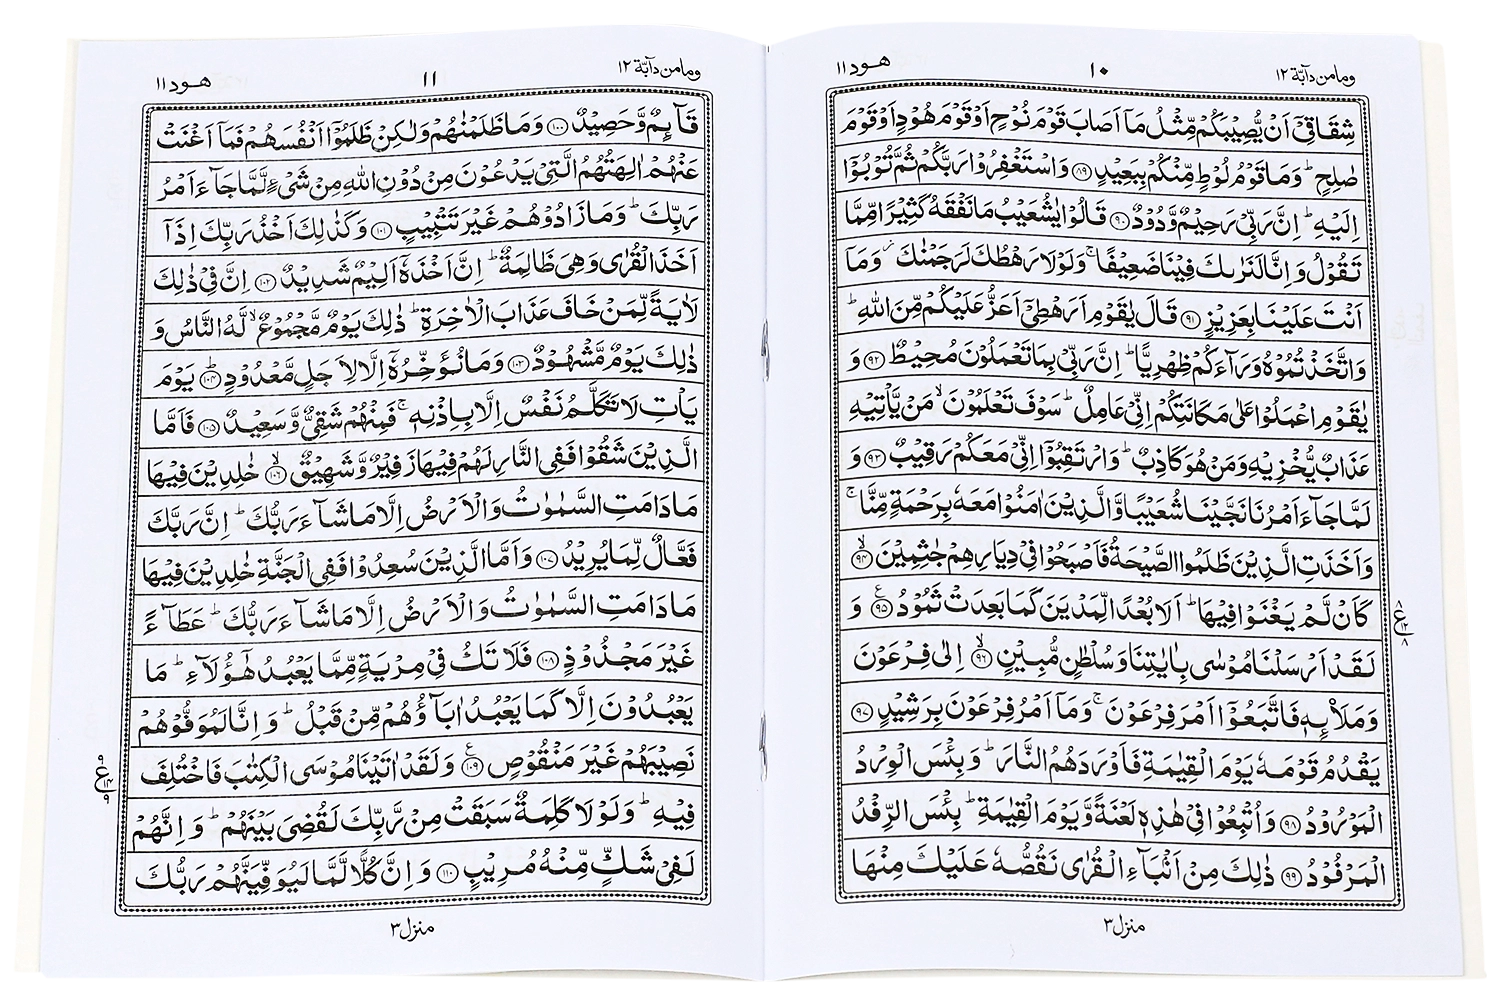 وما من دآبة ١٢
١٠
هود ١١
شِقَاقِيْٓ اَنْ يُّصِيْبَكُمْ مِّثْلُ مَآ اَصَابَ قَوْمَ نُوْحٍ اَوْ قَوْمَ هُوْدٍ اَوْ قَوْمَ
صٰلِحٍ ؕ وَمَا قَوْمُ لُوْطٍ مِّنْكُمْ بِبَعِيْدٍ ﴿۸۹﴾ وَاسْتَغْفِرُوْا رَبَّكُمْ ثُمَّ تُوْبُوْٓا
اِلَيْهِ ؕ اِنَّ رَبِّيْ رَحِيْمٌ وَّدُوْدٌ ﴿۹۰﴾ قَالُوْا يٰشُعَيْبُ مَا نَفْقَهُ كَثِيْرًا مِّمَّا
تَقُوْلُ وَاِنَّا لَنَرٰىكَ فِيْنَا ضَعِيْفًا ۚ وَلَوْلَا رَهْطُكَ لَرَجَمْنٰكَ ؗ وَمَآ
اَنْتَ عَلَيْنَا بِعَزِيْزٍ ﴿۹۱﴾ قَالَ يٰقَوْمِ اَرَهْطِيْٓ اَعَزُّ عَلَيْكُمْ مِّنَ اللّٰهِ ؕ
وَاتَّخَذْتُمُوْهُ وَرَآءَكُمْ ظِهْرِيًّا ؕ اِنَّ رَبِّيْ بِمَا تَعْمَلُوْنَ مُحِيْطٌ ﴿۹۲﴾ وَ
يٰقَوْمِ اعْمَلُوْا عَلٰى مَكَانَتِكُمْ اِنِّيْ عَامِلٌ ؕ سَوْفَ تَعْلَمُوْنَ ۙ مَنْ يَّاْتِيْهِ
عَذَابٌ يُّخْزِيْهِ وَمَنْ هُوَ كَاذِبٌ ؕ وَارْتَقِبُوْٓا اِنِّيْ مَعَكُمْ رَقِيْبٌ ﴿۹۳﴾ وَ
لَمَّا جَآءَ اَمْرُنَا نَجَّيْنَا شُعَيْبًا وَّالَّذِيْنَ اٰمَنُوْا مَعَهٗ بِرَحْمَةٍ مِّنَّا ۚ
وَاَخَذَتِ الَّذِيْنَ ظَلَمُوا الصَّيْحَةُ فَاَصْبَحُوْا فِيْ دِيَارِهِمْ جٰثِمِيْنَ ﴿۹۴﴾ۙ
كَاَنْ لَّمْ يَغْنَوْا فِيْهَا ؕ اَلَا بُعْدًا لِّمَدْيَنَ كَمَا بَعِدَتْ ثَمُوْدُ ﴿۹۵﴾ع وَ
لَقَدْ اَرْسَلْنَا مُوْسٰى بِاٰيٰتِنَا وَسُلْطٰنٍ مُّبِيْنٍ ﴿۹۶﴾ۙ اِلٰى فِرْعَوْنَ
وَمَلَا۟ئِهٖ فَاتَّبَعُوْٓا اَمْرَ فِرْعَوْنَ ۚ وَمَآ اَمْرُ فِرْعَوْنَ بِرَشِيْدٍ ﴿۹۷﴾
يَقْدُمُ قَوْمَهٗ يَوْمَ الْقِيٰمَةِ فَاَوْرَدَهُمُ النَّارَ ؕ وَبِئْسَ الْوِرْدُ
الْمَوْرُوْدُ ﴿۹۸﴾ وَاُتْبِعُوْا فِيْ هٰذِهٖ لَعْنَةً وَّيَوْمَ الْقِيٰمَةِ ؕ بِئْسَ الرِّفْدُ
الْمَرْفُوْدُ ﴿۹۹﴾ ذٰلِكَ مِنْ اَنْۢبَآءِ الْقُرٰى نَقُصُّهٗ عَلَيْكَ مِنْهَا
٨ ع ١٢ ٨
منزل ٣
وما من دآبة ١٢
١١
هود ١١
قَآئِمٌ وَّحَصِيْدٌ ﴿۱۰۰﴾ وَمَا ظَلَمْنٰهُمْ وَلٰكِنْ ظَلَمُوْٓا اَنْفُسَهُمْ فَمَآ اَغْنَتْ
عَنْهُمْ اٰلِهَتُهُمُ الَّتِيْ يَدْعُوْنَ مِنْ دُوْنِ اللّٰهِ مِنْ شَيْءٍ لَّمَّا جَآءَ اَمْرُ
رَبِّكَ ؕ وَمَا زَادُوْهُمْ غَيْرَ تَتْبِيْبٍ ﴿۱۰۱﴾ وَكَذٰلِكَ اَخْذُ رَبِّكَ اِذَآ
اَخَذَ الْقُرٰى وَهِيَ ظَالِمَةٌ ؕ اِنَّ اَخْذَهٗٓ اَلِيْمٌ شَدِيْدٌ ﴿۱۰۲﴾ اِنَّ فِيْ ذٰلِكَ
لَاٰيَةً لِّمَنْ خَافَ عَذَابَ الْاٰخِرَةِ ؕ ذٰلِكَ يَوْمٌ مَّجْمُوْعٌ ۙ لَّهُ النَّاسُ وَ
ذٰلِكَ يَوْمٌ مَّشْهُوْدٌ ﴿۱۰۳﴾ وَمَا نُؤَخِّرُهٗٓ اِلَّا لِاَجَلٍ مَّعْدُوْدٍ ﴿۱۰۴﴾ؕ يَوْمَ
يَاْتِ لَا تَكَلَّمُ نَفْسٌ اِلَّا بِاِذْنِهٖ ۚ فَمِنْهُمْ شَقِيٌّ وَّسَعِيْدٌ ﴿۱۰۵﴾ فَاَمَّا
الَّذِيْنَ شَقُوْا فَفِي النَّارِ لَهُمْ فِيْهَا زَفِيْرٌ وَّشَهِيْقٌ ﴿۱۰۶﴾ۙ خٰلِدِيْنَ فِيْهَا
مَا دَامَتِ السَّمٰوٰتُ وَالْاَرْضُ اِلَّا مَا شَآءَ رَبُّكَ ؕ اِنَّ رَبَّكَ
فَعَّالٌ لِّمَا يُرِيْدُ ﴿۱۰۷﴾ وَاَمَّا الَّذِيْنَ سُعِدُوْا فَفِي الْجَنَّةِ خٰلِدِيْنَ فِيْهَا
مَا دَامَتِ السَّمٰوٰتُ وَالْاَرْضُ اِلَّا مَا شَآءَ رَبُّكَ ؕ عَطَآءً
غَيْرَ مَجْذُوْذٍ ﴿۱۰۸﴾ فَلَا تَكُ فِيْ مِرْيَةٍ مِّمَّا يَعْبُدُ هٰٓؤُلَآءِ ؕ مَا
يَعْبُدُوْنَ اِلَّا كَمَا يَعْبُدُ اٰبَآؤُهُمْ مِّنْ قَبْلُ ؕ وَاِنَّا لَمُوَفُّوْهُمْ
نَصِيْبَهُمْ غَيْرَ مَنْقُوْصٍ ﴿۱۰۹﴾ع وَلَقَدْ اٰتَيْنَا مُوْسَى الْكِتٰبَ فَاخْتُلِفَ
فِيْهِ ؕ وَلَوْلَا كَلِمَةٌ سَبَقَتْ مِنْ رَّبِّكَ لَقُضِيَ بَيْنَهُمْ ؕ وَاِنَّهُمْ
لَفِيْ شَكٍّ مِّنْهُ مُرِيْبٍ ﴿۱۱۰﴾ وَاِنَّ كُلًّا لَّمَّا لَيُوَفِّيَنَّهُمْ رَبُّكَ
٩ ع ١٤ ٩
منزل ٣